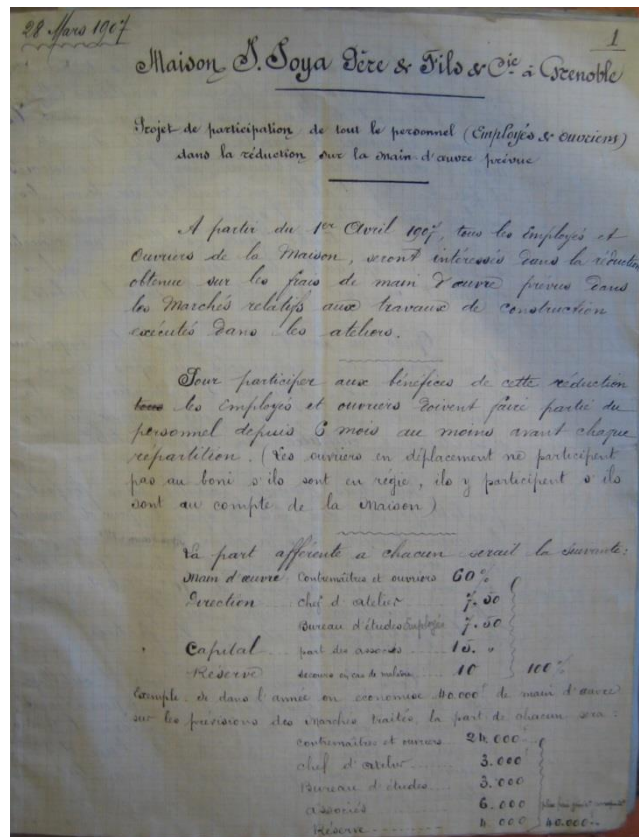 28 Mars 1907
1
Maison J. Joya Père & Fils & Cie à Grenoble
Projet de participation de tout le personnel (Employés & ouvriers)
dans la réduction sur la main d'œuvre prévue
A partir du 1er Avril 1907, tous les Employés et
Ouvriers de la Maison, seront intéressés dans la réduction
obtenue sur les frais de main d'œuvre prévus dans
les Marchés relatifs aux travaux de construction
exécutés dans les ateliers.
Pour participer aux bénéfices de cette réduction
tous les Employés et ouvriers doivent faire partie du
personnel depuis 6 mois au moins avant chaque
répartition. (Les ouvriers en déplacement ne participent
pas au boni s'ils sont en régie, ils y participent s'ils
sont au compte de la Maison)
La part afférente a chacun serait la suivante:
Main d'œuvre Contremaîtres et ouvriers 60%
Direction chef d'atelier 7.50
Bureau d'études employés 7.50
Capital part des associés 15. "
Réserve secours en cas de maladie 10 100%
Exemple. Si dans l'année on économise 40.000f de main d'œuvre
sur les prévisions des marchés traités, la part de chacun sera:
contremaîtres et ouvriers 24.000
chef d'atelier 3.000
Bureau d'études 3.000
associés 6.000
Réserve 4.000 40.000f